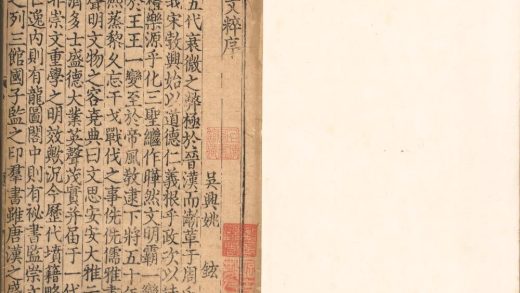 文粹序
吳興姚鉉
五代衰微之弊極於晉漢而漸革于周
我宋敦興始以道德仁義根乎政次以
禮樂源乎化三聖繼作曄然文明霸一變
於王王一變至於帝風教逮下將五十
蒸黎久忘干戈戰伐之事侁侁儒雅
聲明文物之容堯典曰文思安安大雅
濟多士盛德大業英聲茂實并届于一代
非崇文重學之明效歟況今歷代墳籍略
亡逸内則有龍圖閣中則有祕書監崇文
之列三館國子監之印羣書雖唐漢之盛